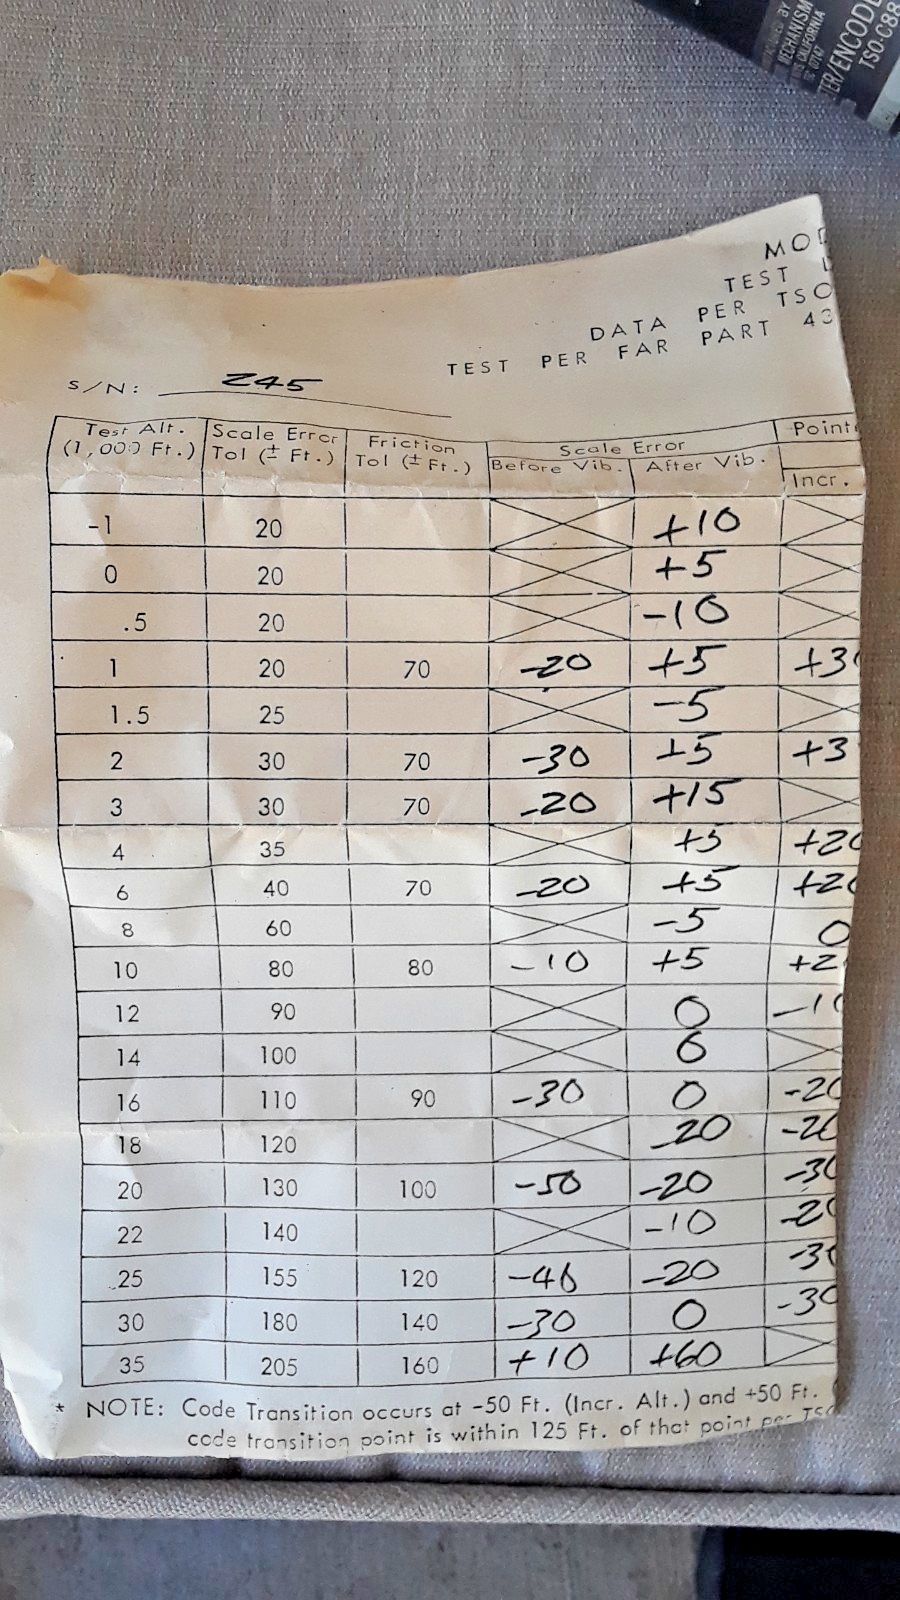 MECHANISM
CALIFORNIA
TER/ENCODE
TSO-C88
TEST
DATA PER TSO
TEST PER FAR PART 43
S/N: 245
Test Alt. (1,000 Ft.) Scale Error Tol (± Ft.) Friction Tol (± Ft.) Scale Error Point
Before Vib. After Vib. Incr.
-1 20 +10
0 20 +5
.5 20 -10
1 20 70 -20 +5 +30
1.5 25 -5
2 30 70 -30 +5 +3
3 30 70 -20 +15
4 35 +5 +20
6 40 70 -20 +5 +20
8 60 -5 0
10 80 80 -10 +5 +2
12 90 0 -10
14 100 0
16 110 90 -30 0 -20
18 120 -20 -20
20 130 100 -50 -20 -30
22 140 -10 -20
25 155 120 -40 -20 -30
30 180 140 -30 0 -30
35 205 160 +10 +60
* NOTE: Code Transition occurs at -50 Ft. (Incr. Alt.) and +50 Ft. (
code transition point is within 125 Ft. of that point per TSO